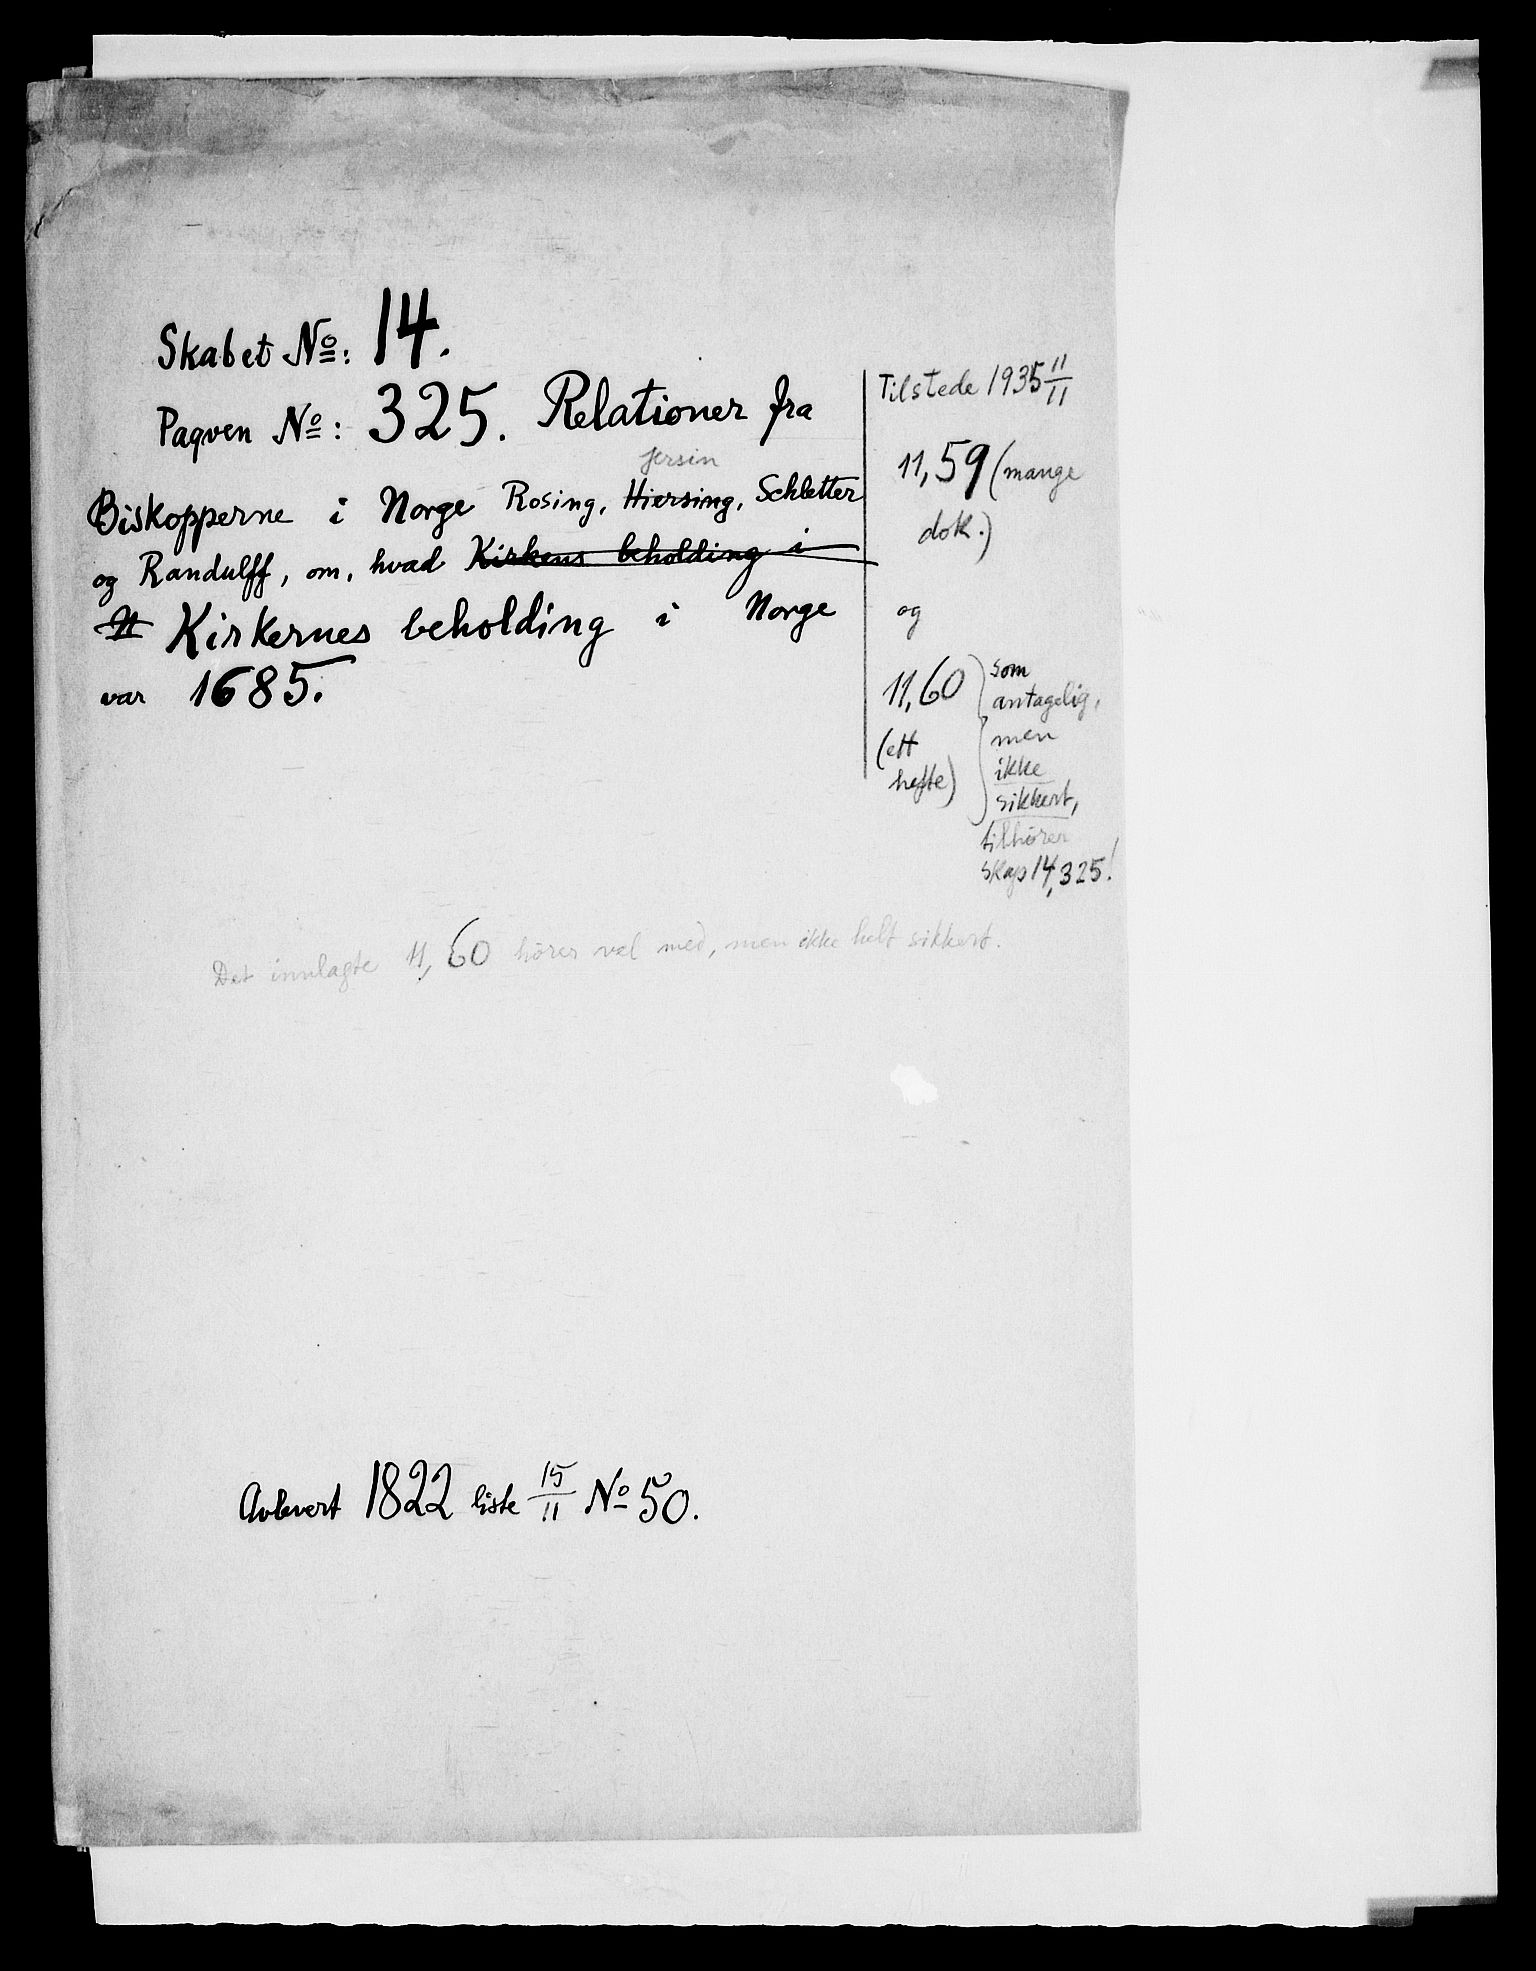 Skabet No: 14.
Paqven No: 325. Relationer fra
Jersin
Biskopperne i Norge Rosing, Hiersing, Schletter
og Randulff, om, hvad Kirkens beholding i
N Kirkernes beholding i Norge
var 1685.
Tilstede 1935 11/11
11,59 (mange
dok.)
og
11,60
(ett
hefte)
som
antagelig,
men
ikke
sikkert,
tilhører
skap 14,325!
Det innlagte 11,60 hører vel med, men ikke helt sikkert.
Avlevert 1822 liste 15/11 No 50.